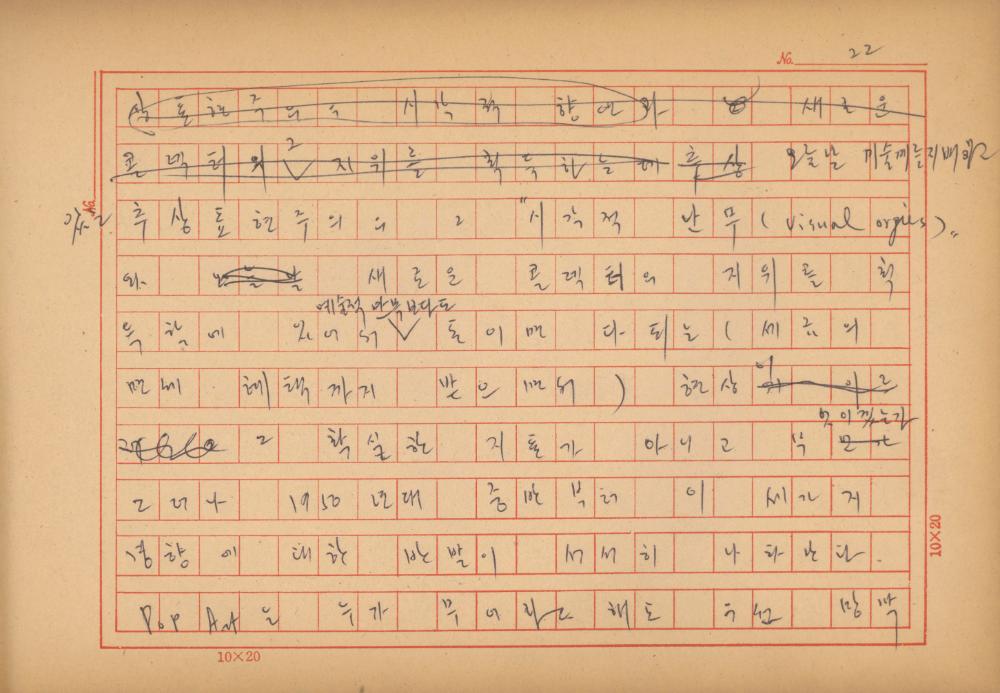 No. 22
상표현주의의 시각적 향연과 새로운
콜렉터의 그 지위를 획득하는데 추상 오늘날 미술계를 지배하고
추상표현주의의 그 "시각적 난무(visual orgies)"
와 새로운 콜렉터의 지위를 획
득함에 있어서 예술적 만족보다도 돈이면 다 되는 (세금의
면세 혜택까지 받으면서) 현상이
그 확실한 지표가 아니고 무엇이겠는가
그러나 1950년대 중반부터 이 세가지
경향에 대한 반발이 서서히 나타난다.
Pop Art은 누가 무어라고 해도 우선 망막
10×20
10×20